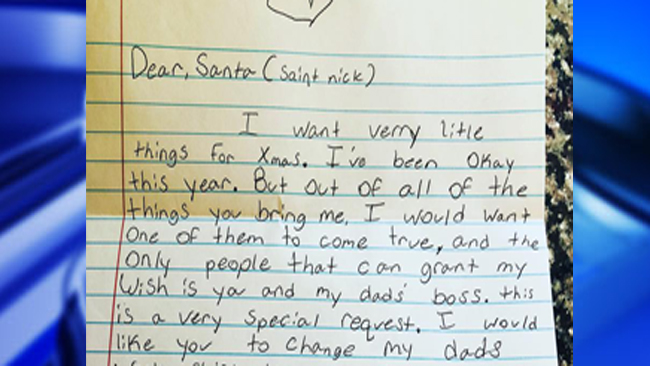 Dear, Santa (Saint nick)
I want verry litle
things for Xmas. I've been Okay
this year. But out of all of the
things you bring me, I would want
One of them to come true, and the
Only people that can grant my
Wish is you and my dads' boss. this
is a very special request. I would
like you to change my dads